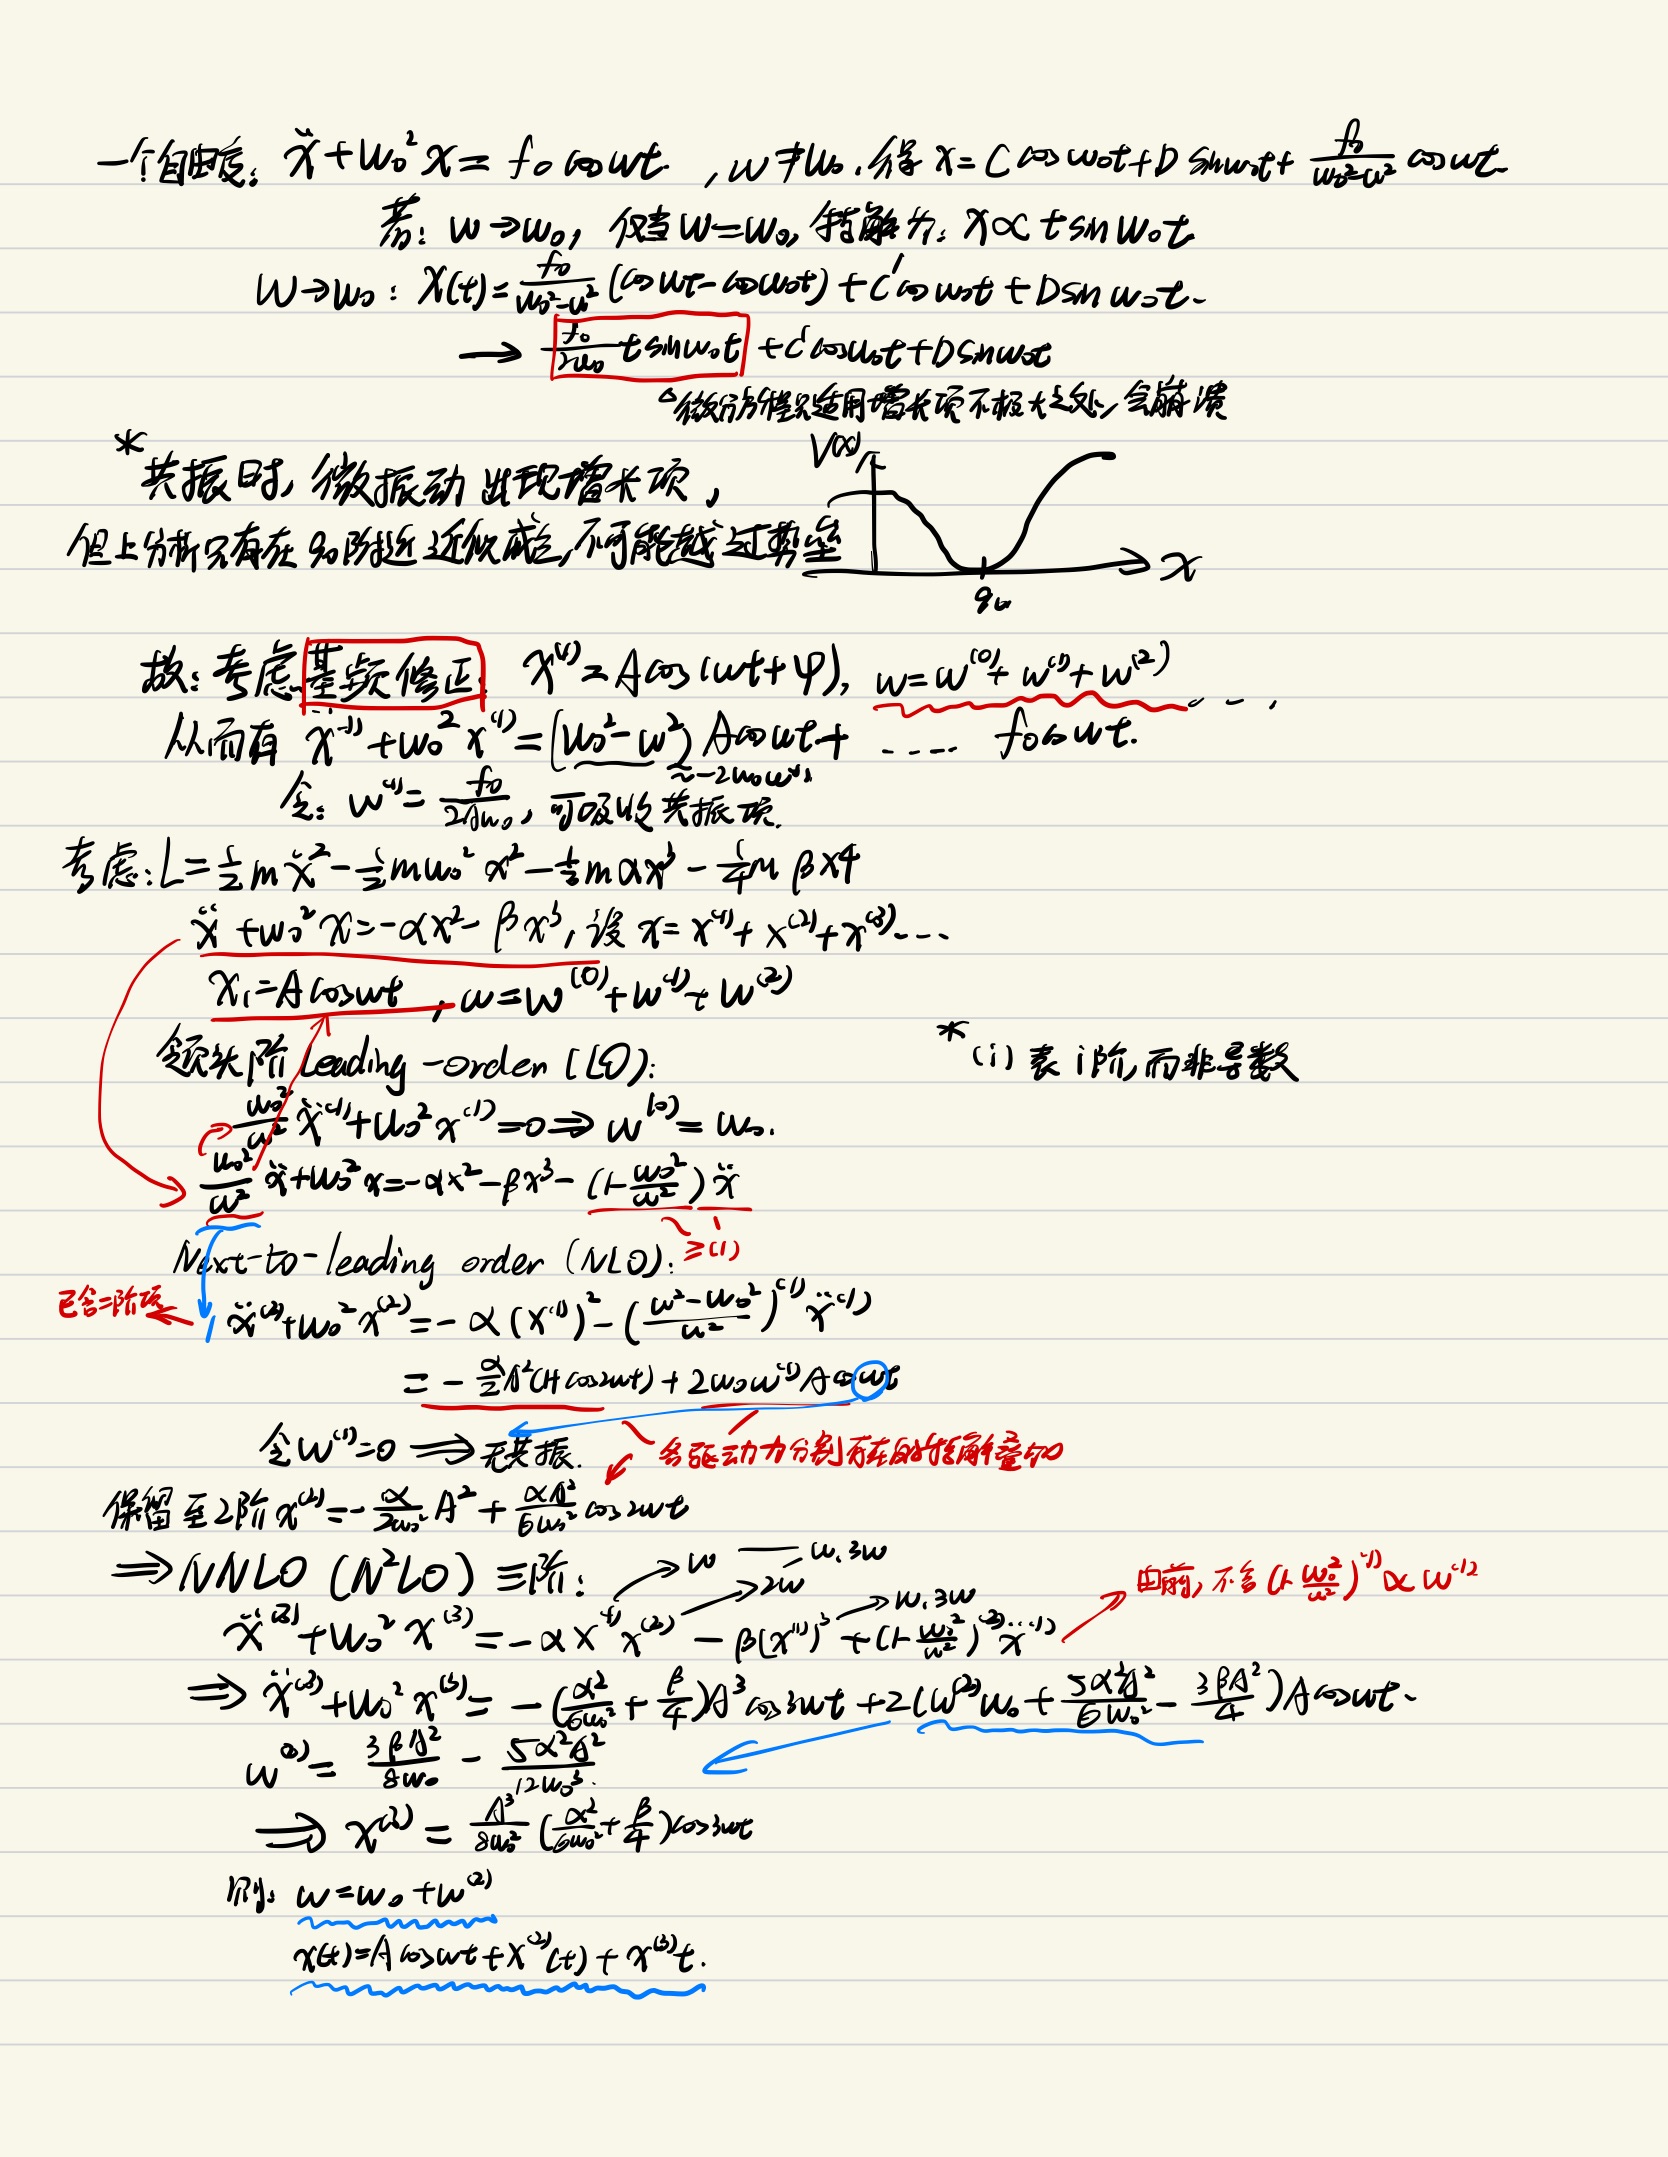 一个自由度: ẍ+ω₀²x = f₀cosωt , ω≠ω₀. 得 x=Ccosω₀t+Dsinω₀t+ f₀/(ω₀²-ω²) cosωt
若: ω→ω₀, 仅当ω=ω₀, 特解为: x∝tsinω₀t
ω→ω₀: x(t)= f₀/(ω₀²-ω²) (cosωt-cosω₀t)+C'cosω₀t+Dsinω₀t.
→ f₀/2ω₀ tsinω₀t +C'cosω₀t+Dsinω₀t
微分方程只适用增长项不极大之处, 会崩溃
* 共振时, 微振动出现增长项,
但上分析只有在 阶近似成立, 不可能越过势垒
V(x)
x
q₀
故: 考虑基频修正: x⁽¹⁾=Acos(ωt+φ), ω=ω⁽⁰⁾+ω⁽¹⁾+ω⁽²⁾ ....
从而有 ẍ⁽¹⁾+ω₀²x⁽¹⁾=(ω₀²-ω²)Acosωt+ .... f₀cosωt.
≈-2ω₀ω⁽¹⁾
令: ω⁽¹⁾= f₀/2Aω₀, 可吸收共振项.
考虑: L=½mẋ²-½mω₀²x²-⅓mαx³-¼mβx⁴
ẍ+ω₀²x=-αx²-βx³, 设 x=x⁽¹⁾+x⁽²⁾+x⁽³⁾....
x₁=Acosωt , ω=ω⁽⁰⁾+ω⁽¹⁾+ω⁽²⁾
领头阶 leading-order (LO):
* (i) 表 i 阶, 而非导数
ω₀²/ω² ẍ⁽¹⁾+ω₀²x⁽¹⁾=0 ⇒ ω⁽⁰⁾=ω₀.
ω₀²/ω² ẍ+ω₀²x=-αx²-βx³-(1-ω₀²/ω²)ẍ
≥(1)
Next-to-leading order (NLO):
已含二阶项
ẍ⁽²⁾+ω₀²x⁽²⁾=-α(x⁽¹⁾)²-((ω²-ω₀²)/ω²)⁽¹⁾ẍ⁽¹⁾
=-α/2 A²(1+cos2ωt)+2ω₀ω⁽¹⁾Acosωt
令ω⁽¹⁾=0 ⇒ 无共振.
各驱动力分别存在时特解叠加
保留至2阶 x⁽²⁾=-α/2ω₀² A²+ αA²/6ω₀² cos2ωt
⇒ NNLO (N²LO) 三阶:
ω — ω.3ω
2ω
ω.3ω
由前, 不含(1-ω₀²/ω²)⁽¹⁾∝ω⁽¹⁾
ẍ⁽³⁾+ω₀²x⁽³⁾=-αx⁽¹⁾x⁽²⁾-β(x⁽¹⁾)³+(1-ω₀²/ω²)⁽²⁾ẍ⁽¹⁾
⇒ ẍ⁽³⁾+ω₀²x⁽³⁾=-(α²/6ω₀²+β/4)A³cos3ωt+2(ω⁽²⁾ω₀+5α²A²/6ω₀²-3βA²/4)Acosωt.
ω⁽²⁾= 3βA²/8ω₀ - 5α²A²/12ω₀³.
⇒ x⁽³⁾= A³/8ω₀² (α²/6ω₀²+β/4)cos3ωt
则: ω=ω₀+ω⁽²⁾
x(t)=Acosωt+x⁽²⁾(t)+x⁽³⁾t.